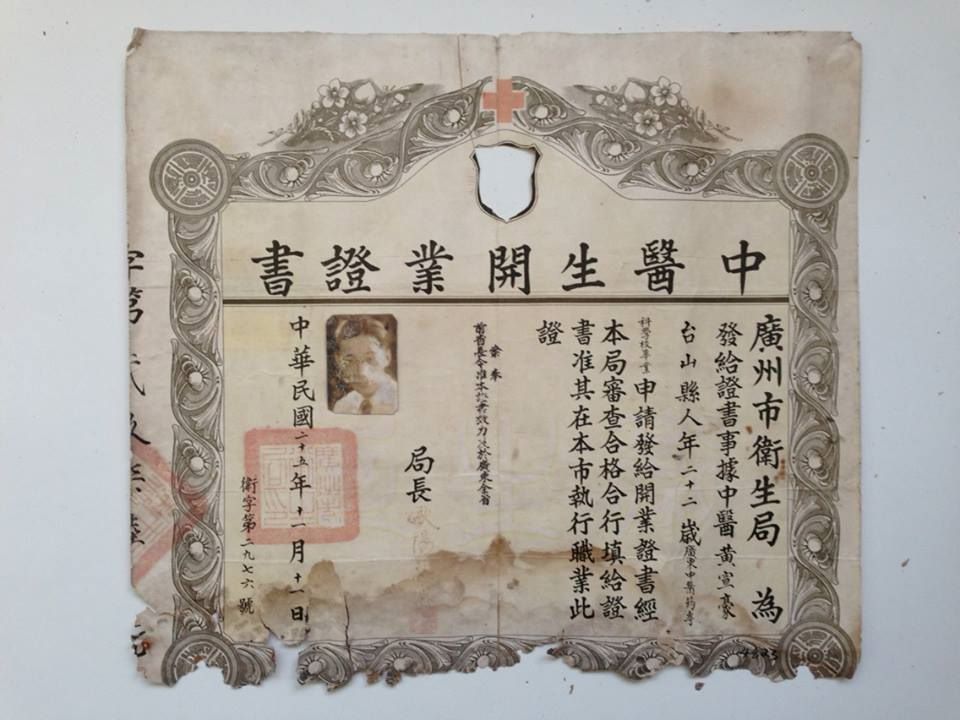 中醫生開業證書
廣州市衛生局 為
發給證書事據中醫黃宣豪
台山縣人年二十二歲廣東中醫葯專
科學校畢業申請發給開業證書經
本局審查合格合行填給證
書准其在本市執行職業此
證
業奉
前省長令准本證書效力及於廣東全省
局長
中華民國二十五年十一月十一日
衛字第二九七六號
字第
4823